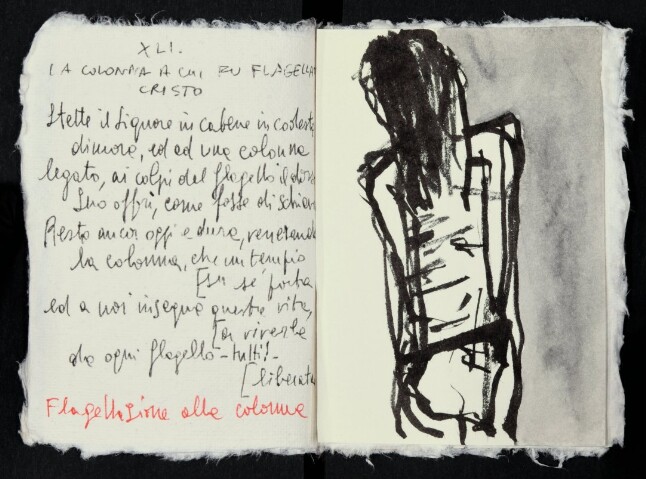 XLI.
LA COLONNA A CUI FU FLAGELLA
CRISTO
Stette il Signore in catene in codesta
dimora, ed ad una colonna
legato, ai colpi del flagello il dors
Suo offrì, come fosse di schiav
Resta ancor oggi e dura, veneranda
la colonna, che un tempio
[su sé porta
ed a noi insegna questa vita,
[a viverla
da ogni flagello - tutti! -
[liberata
Flagellazione alla colonna